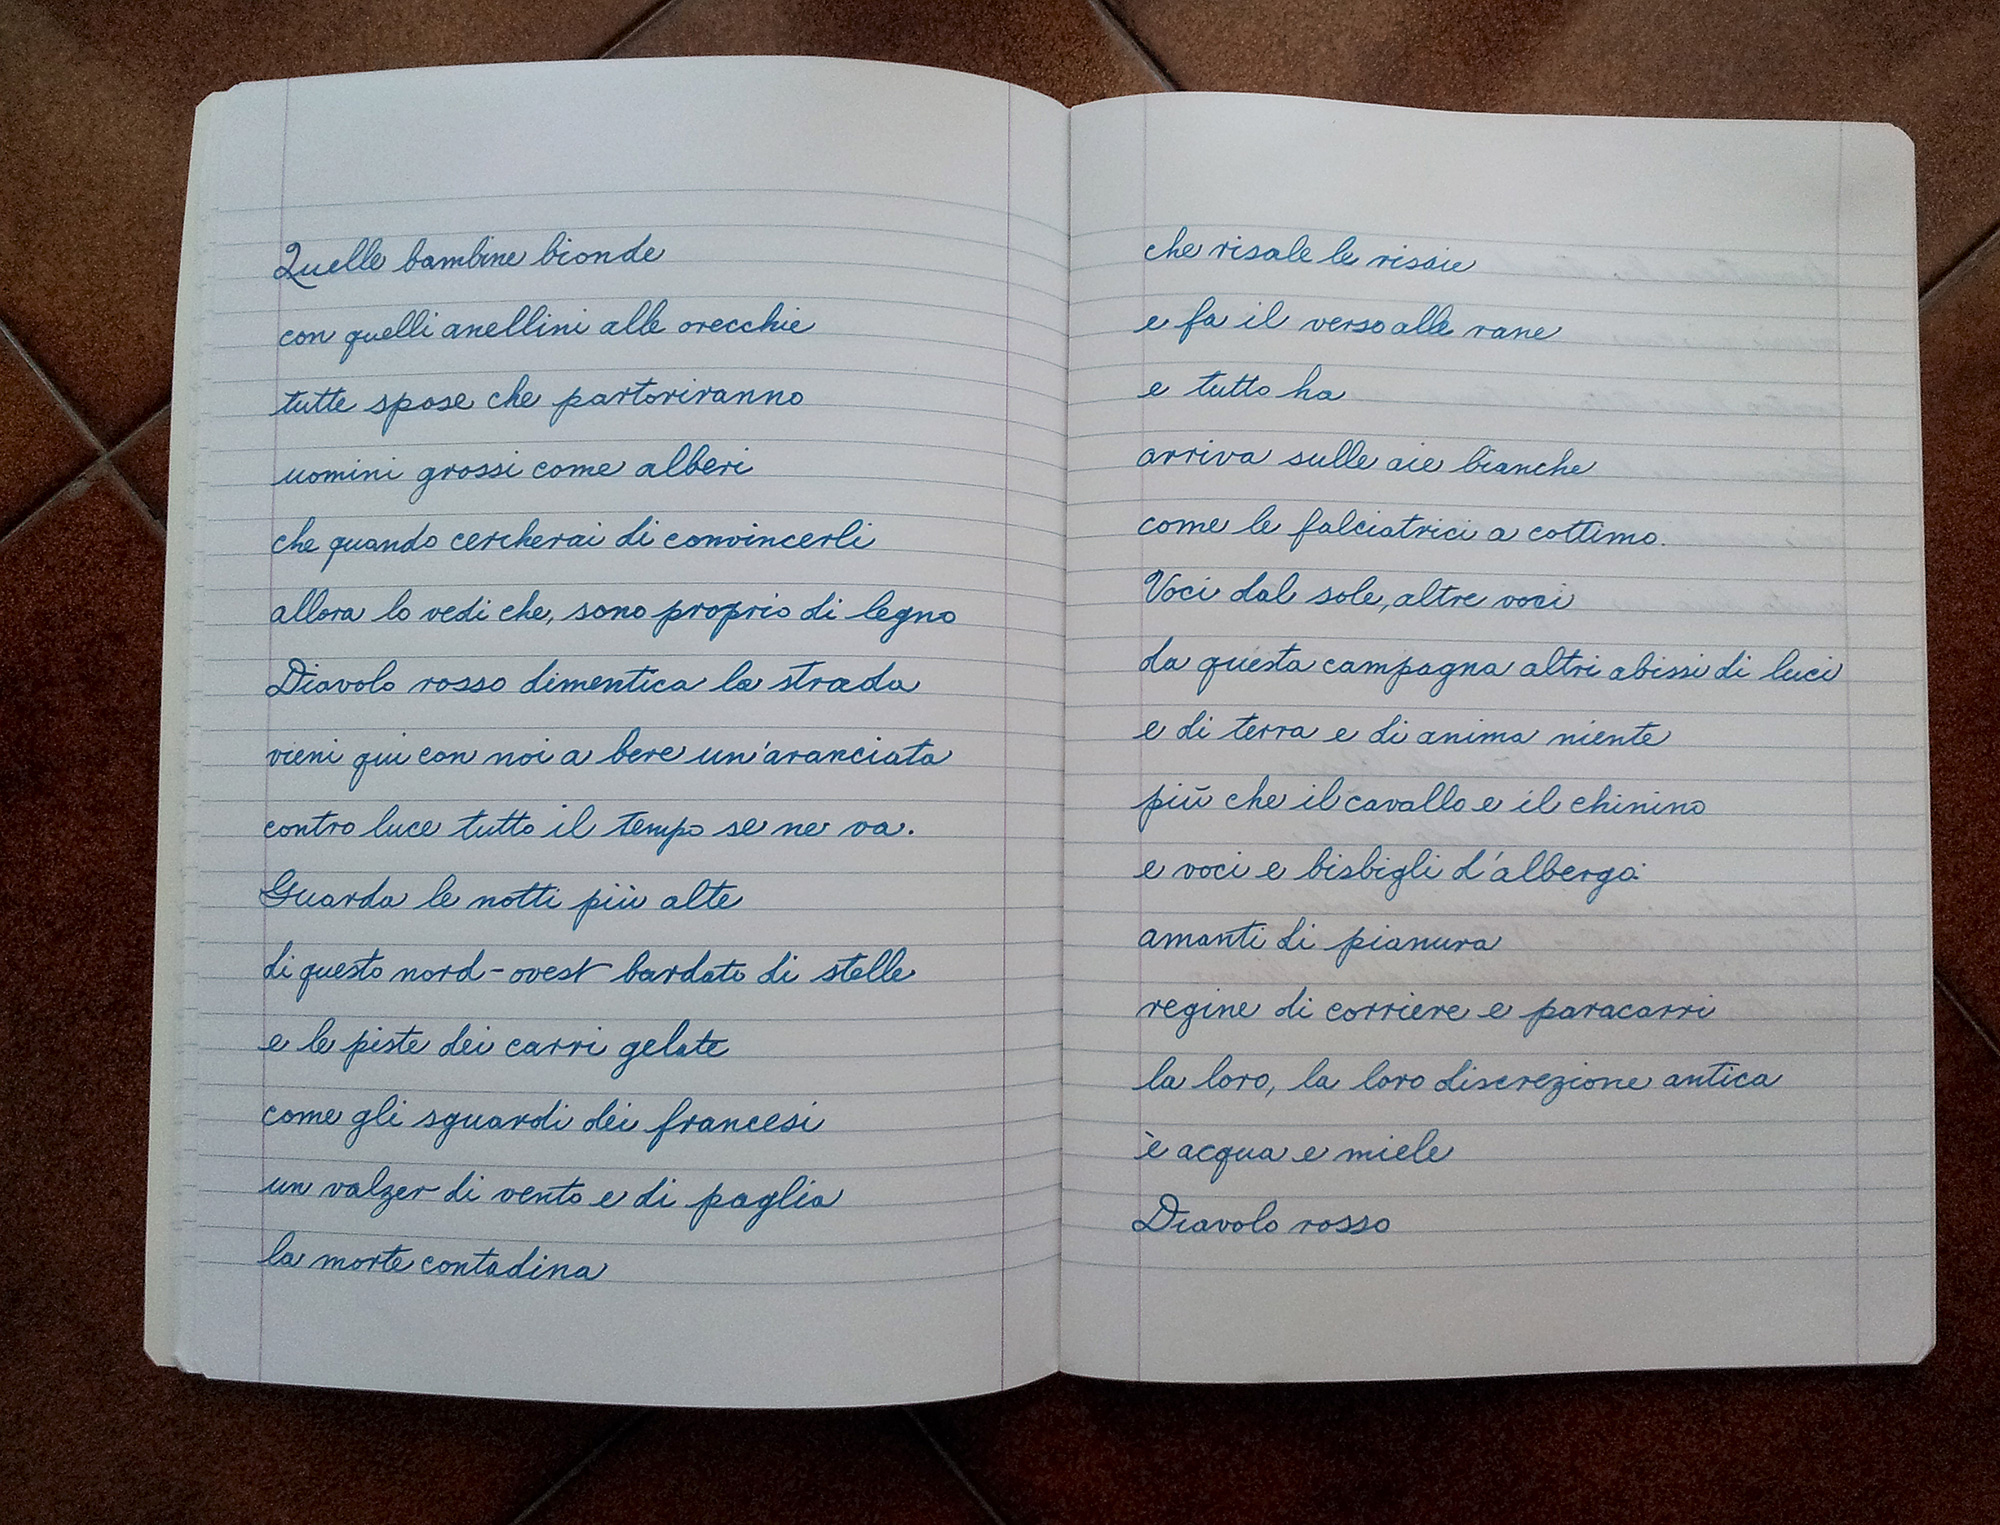 Quelle bambine bionde
con quelli anellini alle orecchie
tutte spose che partoriranno
uomini grossi come alberi
che quando cercherai di convincerli
allora lo vedi che, sono proprio di legno
Diavolo rosso dimentica la strada
vieni qui con noi a bere un'aranciata
contro luce tutto il tempo se ne va.
Guarda le notti più alte
di questo nord-ovest bardato di stelle
e le piste dei carri gelate
come gli sguardi dei francesi
un valzer di vento e di paglia
la morte contadina
che risale le risaie
e fa il verso alle rane
e tutto ha
arriva sulle aie bianche
come le falciatrici a cottimo.
Voci dal sole, altre voci
da questa campagna altri abissi di luci
e di terra e di anima niente
più che il cavallo e il chinino
e voci e bisbigli d'albergo:
amanti di pianura
regine di corriere e paracarri
la loro, la loro discrezione antica
è acqua e miele
Diavolo rosso